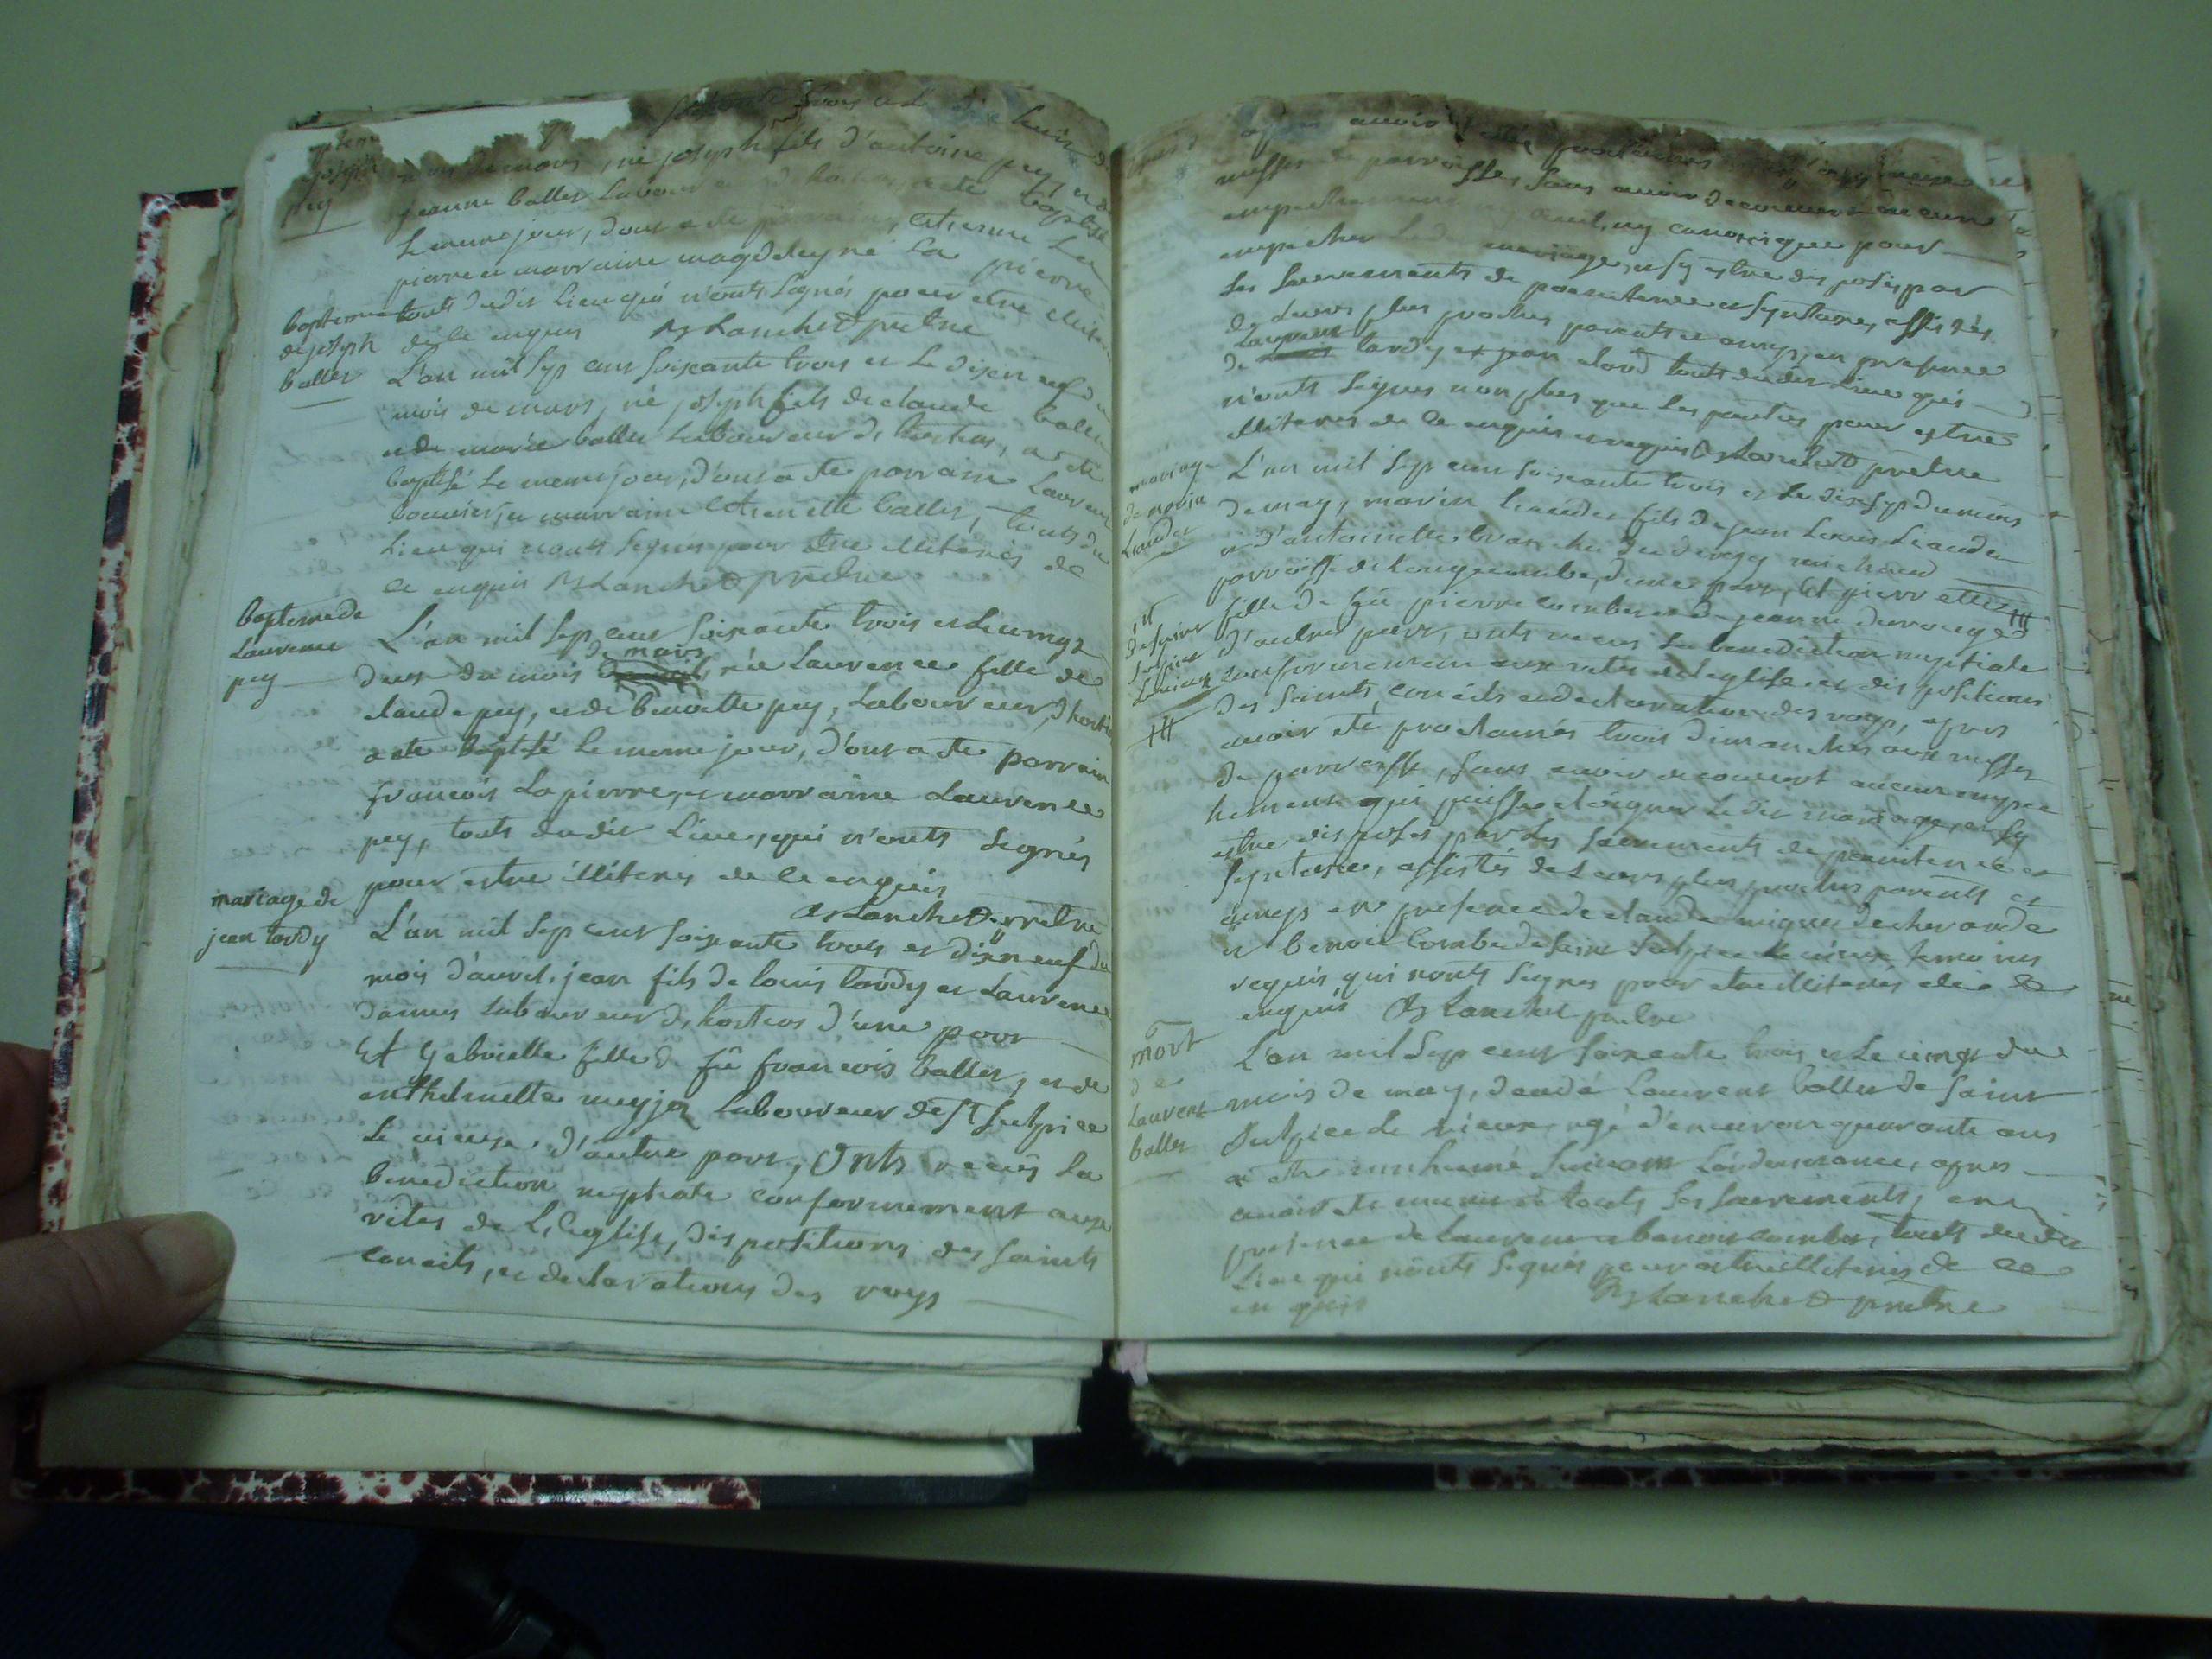 baptême
joseph
pey
soixante trois et le dix huit du
mois de mars, né joseph fils d'antoine pey, et de
jeanne ballet laboureur d'hostias, a été baptisé
le meme jour, dont a été parrain, etienne La
pierre et marraine magdeleyne La pierre
touts dudit lieu qui n'onts signés pour etre illiterés
de ce enquis Blanchet prêtre
bapteme
de joseph
ballet
L'an mil sep cens soixante trois et le dixneuf du
mois de mars, né joseph fils de claude ballet
et de marie ballet laboureur d'hostias, a été
baptisé le meme jour, d'ont a été parrain Laurent
bouvier, et marraine etiennette ballet, touts du
lieu qui n'onts signés pour etre illiterés de
ce enquis Blanchet prêtre
bapteme de
Laurence
pey
L'an mil sep cens soixante trois et le vingt
deux du mois de mars, née Laurence fille de
claude pey, et de benoitte pey, Laboureur, d'hostias
a été baptisé le meme jour, d'ont a été parrain
francois Lapierre, et marraine Laurence
pey, touts dudit lieu, qui n'onts signés
pour estre illiterés de ce enquis
Blanchet prêtre
mariage de
jean tardy
L'an mil sep cens soixante trois et dixneuf du
mois d'avril, jean fils de louis tardy et Laurence
laboureur d'hostias d'une part
Et gabrielle fille de fû francois ballet, et de
anthelmette meyjer Laboureur de st sulpice
le vieux, d'autre part, Onts recûs la
benediction nuptiale conformement aux
rites de L'Eglise, dispositions des saints
conciles, et declarations des roys
apres avoir étés proclamés
messes de parroisses, sans avoir decouvert aucun
empechement ny civil, ny canonique pour
empecher le dit mariage, et sy estre disposés par
les sacrements de penitence et Synthaxe, assistés
de leurs plus proches parents et amys, en presence
de Laurent tardy et jean tous dudit lieu qui
n'onts signés non plus que les parties pour estre
illiterés de ce enquis et requis Blanchet prêtre
mariage
de marin
Liaudet
L'an mil sep cens soixante trois et le dix sep du mois
de may, marin Liaudet fils de jean Louis Liaudet
et d'antoinette du
parroisse de Longecombe, d'une part, Et pierrette
fille de fû pierre combe et de jeanne
de saint
sulpice
le vieux
d'autre part, onts recus la benediction nuptiale
conformement aux rites de l'eglise et dispositions
des saints conciles et declarations des roys, apres
avoir été proclamés trois dimanches aux messes
de parroisse, sans avoir decouvert aucun empec
hement qui puisse eloigner le dit mariage, et sy
estre disposés par les sacrements de penitence et
Syntaxe, assistés de leurs plus proches parents et
amys en presence de claude miguet
et benoit Combe de saint sulpice le vieux temoins
requis, qui n'onts signés pour etre illiterés de ce
enquis Blanchet prêtre
mort
de
Laurent
ballet
L'an mil sep cens soixante trois et le vingt du
mois de may, decedé Laurent ballet de saint
Sulpice le vieux, agé d'environ quarante ans
a été inhumé suivant L'ordonnance, apres
avoir été munis de touts les sacrements, en
presence de Laurent et benoit combe, touts dudit
Lieu qui n'onts signés pour etre illiterés de ce
enquis Blanchet prêtre